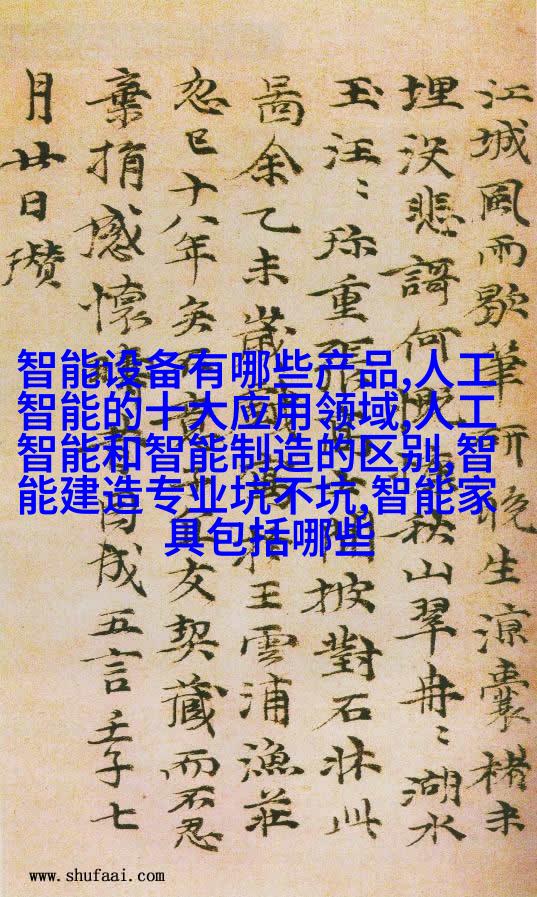 江城風雨歇筆研晚生涼囊楮未
埋没悲謌何慷秋山翠冉〻湖水
玉汪〻珎重張披對石牀此
啚余乙未歲王雲浦漁莊
忽已十八年矣不友契藏而不忍
棄捐感懷因成五言壬子七
月廿日瓚
智能设备有哪些产品,人工
智能的十大应用领域,人工
智能和智能制造的区别,智
能建造专业坑不坑,智能家
具包括哪些
www.shufaai.com